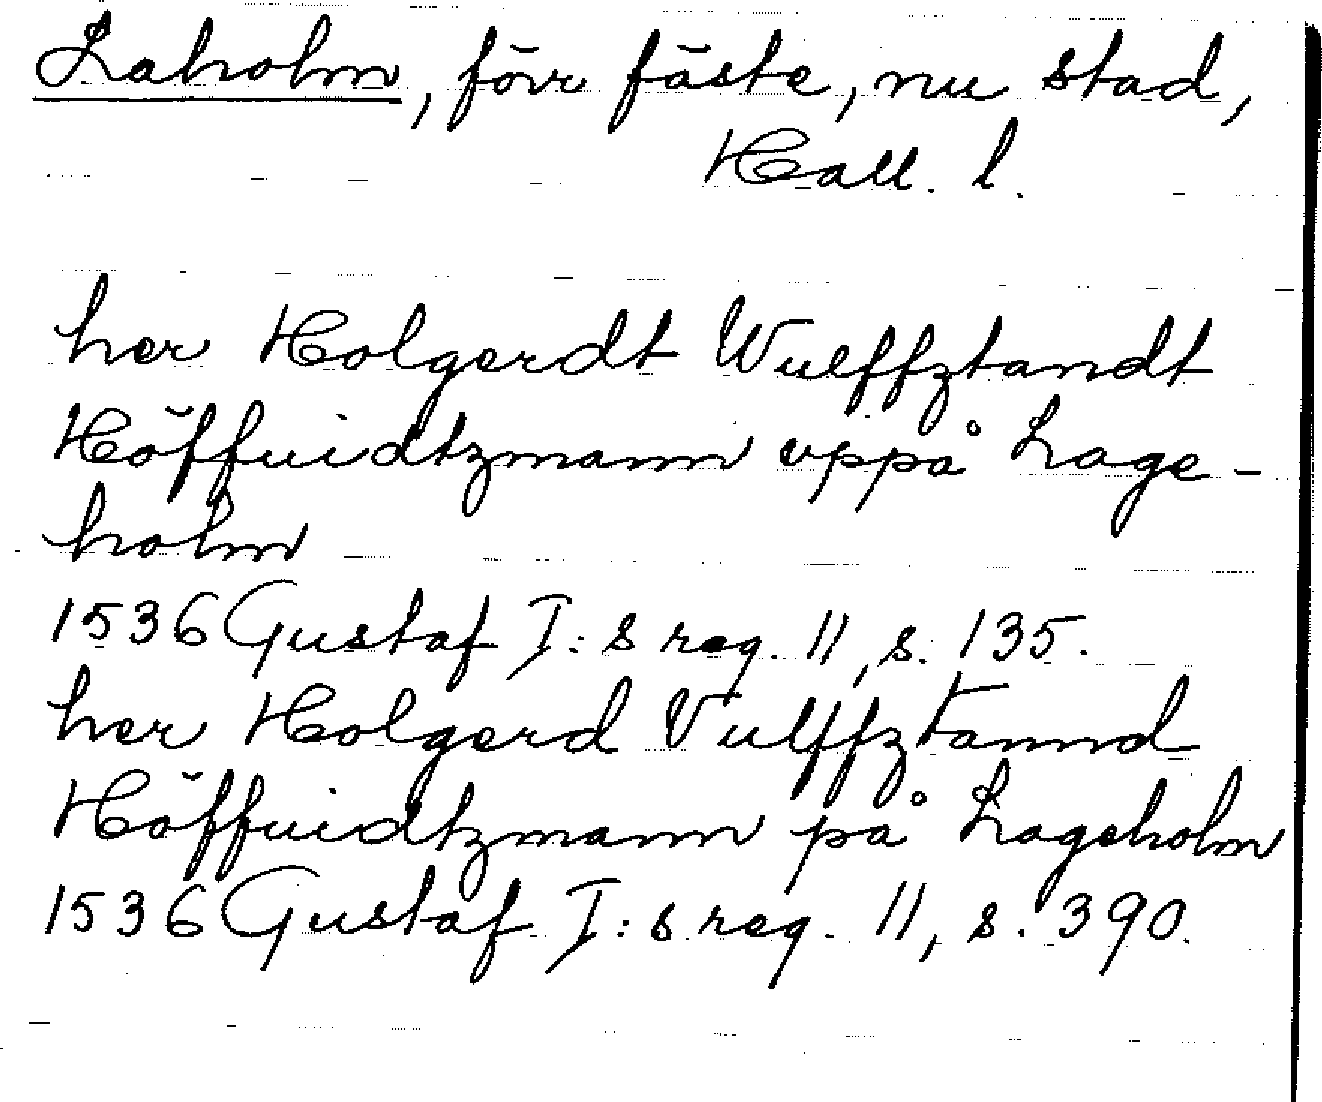 Laholm, förr fäste, nu stad,
Hall. l.
her Holgerdt Wulffztandt
Höffuidtzmann vppå Lage-
holm
1536 Gustaf I:s reg. 11, s. 135.
her Holgerd Vulffztannd
Höffuidtzmann på Lageholm
1536 Gustaf I:s reg. 11, s. 390.